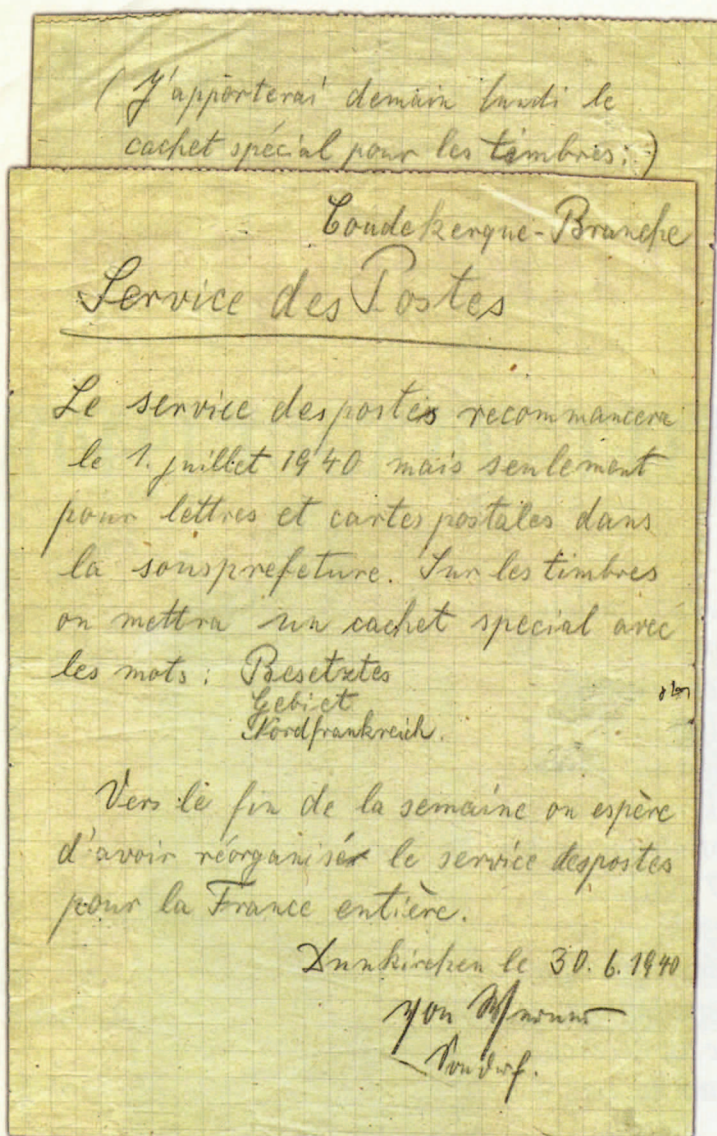 (J'apporterai demain lundi le
cachet spécial pour les timbres.)
Coudekerque-Branche
Service des Postes
Le service des postes recommancera
le 1. juillet 1940 mais seulement
pour lettres et cartes postales dans
la sousprefeture. Sur les timbres
on mettra un cachet special avec
les mots : Besetztes
Gebiet
Nordfrankreich.
Vers le fin de la semaine on espère
d'avoir réorganisér le service des postes
pour la France entière.
Dunkirchen le 30. 6. 1940
von